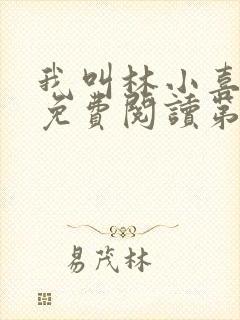 我叫林小喜
免費閱讀第
易茂林